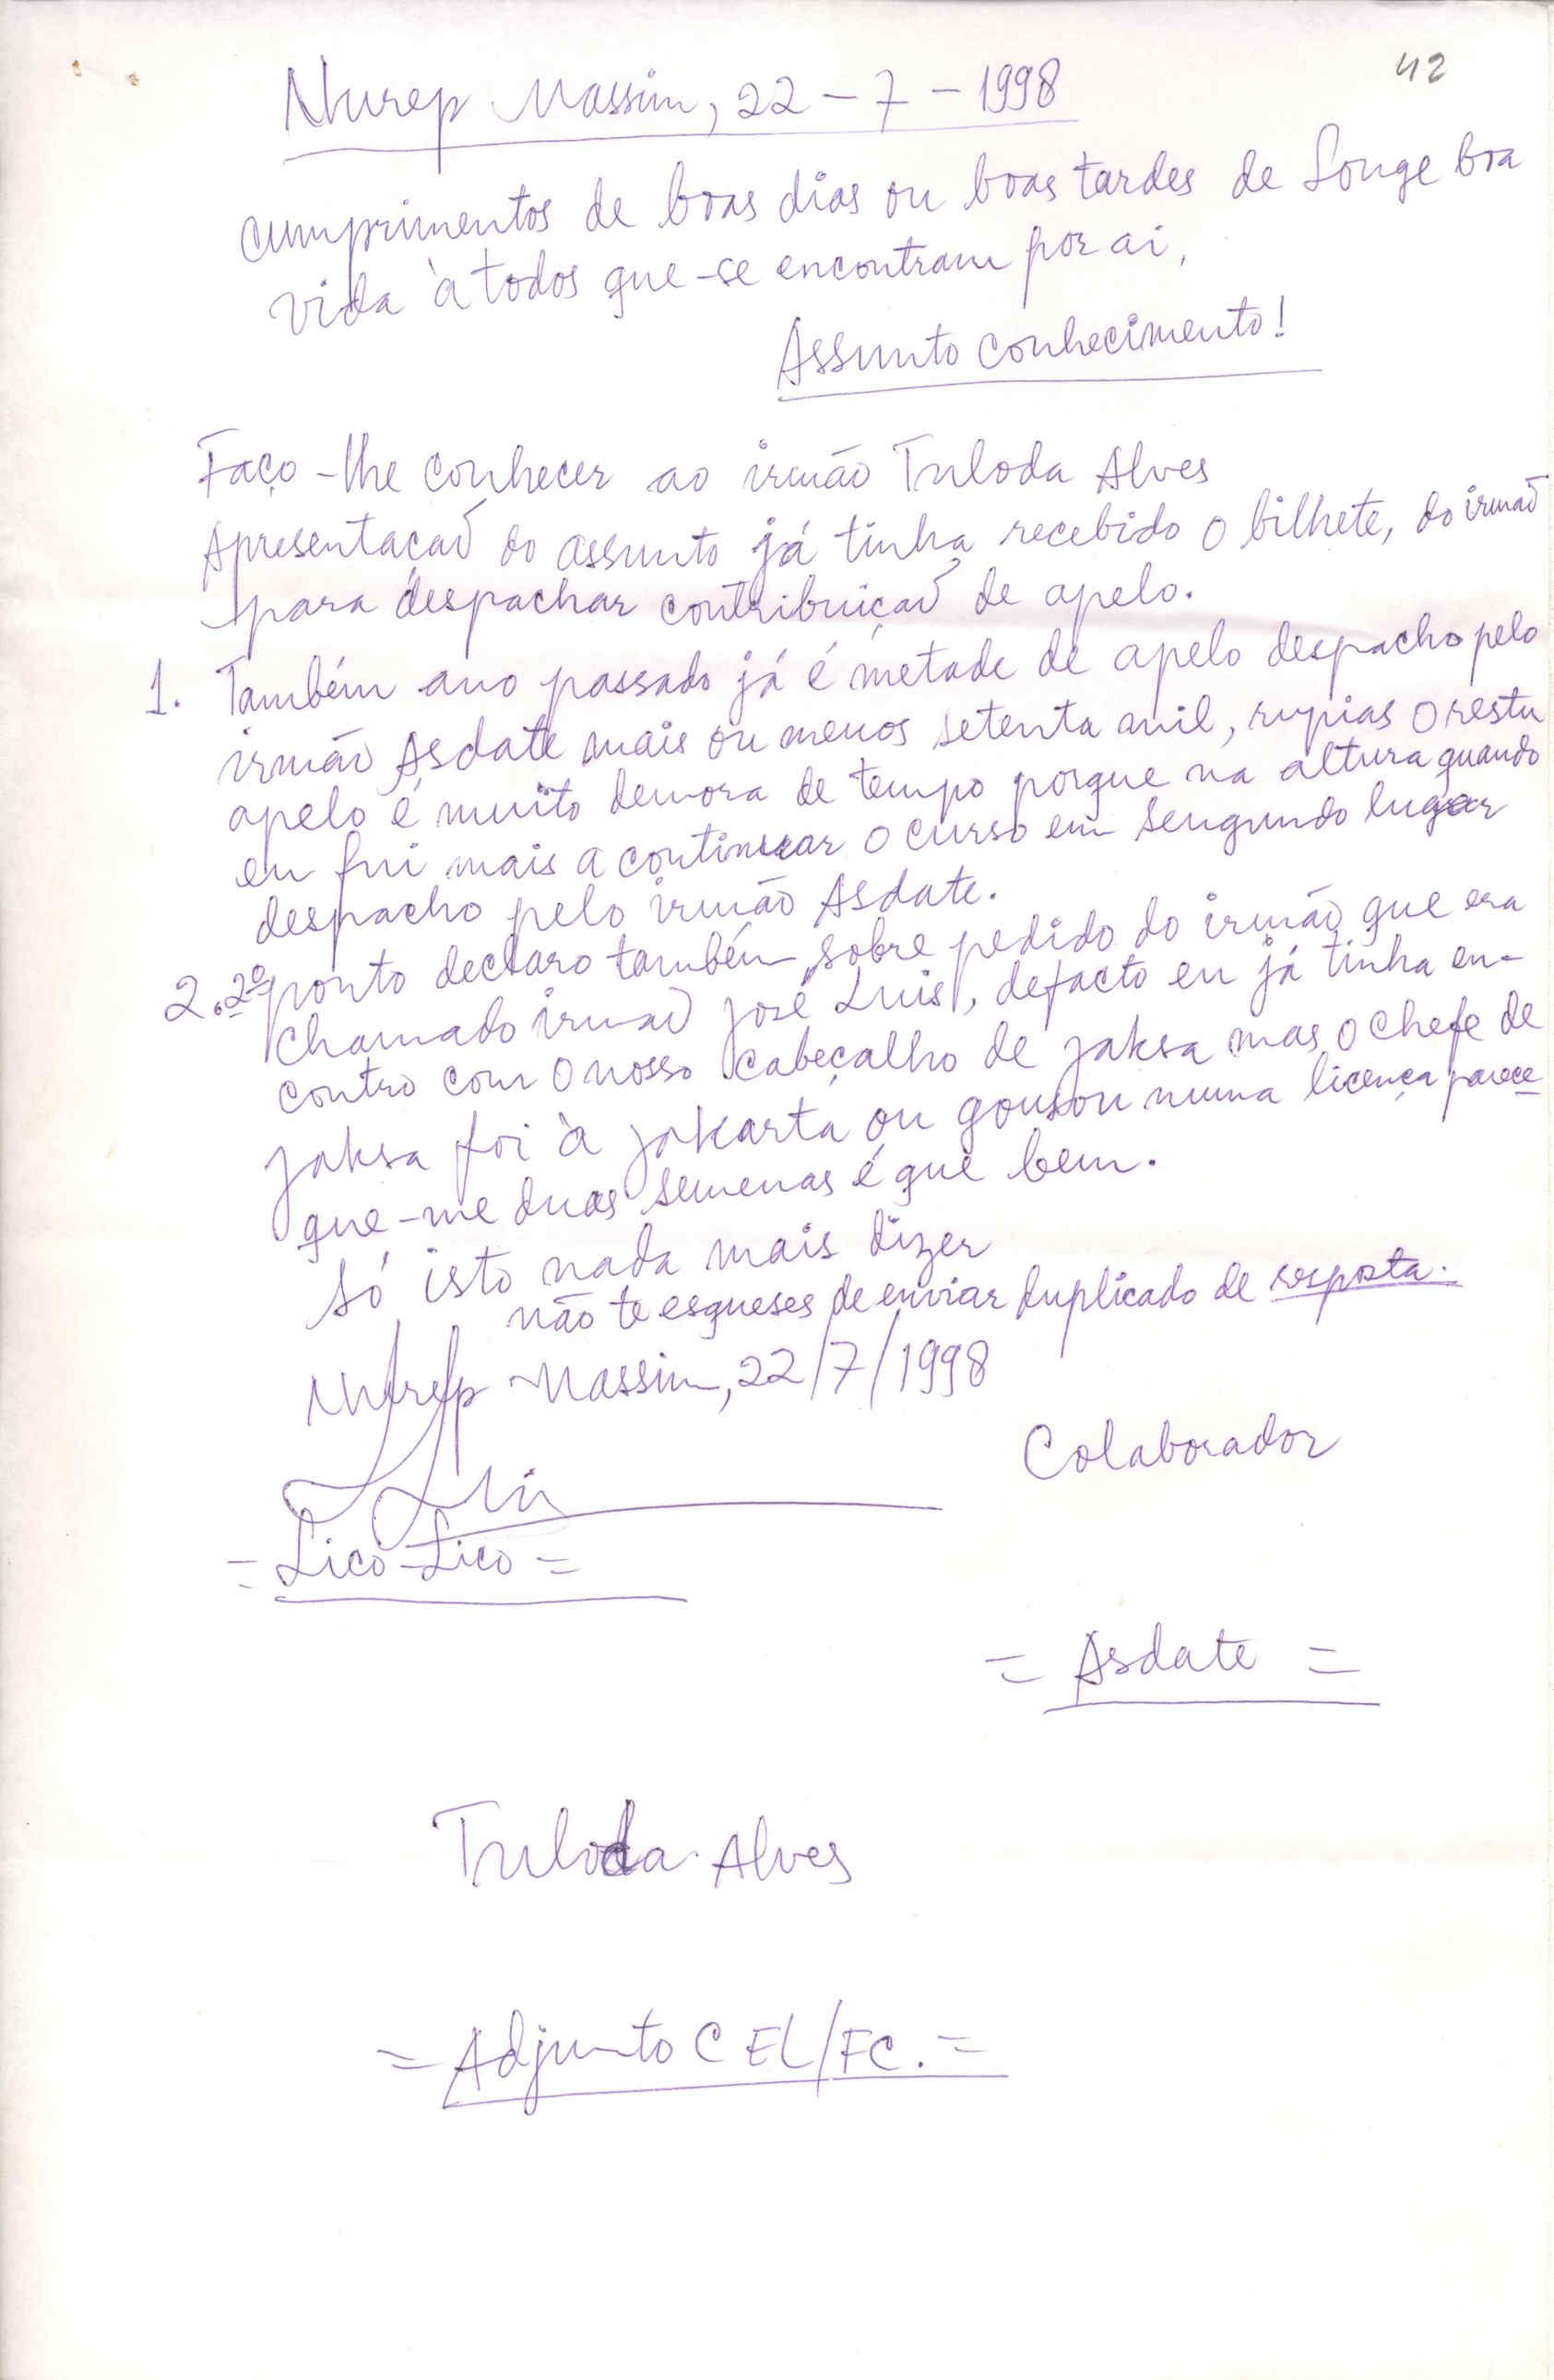 42
Nhurep Massin, 22 - 7 - 1998
cumprimentos de boas dias ou boas tardes de Longe boa
vida à todos que-se encontram por ai,
Assunto conhecimento!
Faço-lhe conhecer ao irmão Tuloda Alves
Apresentaçaõ do assunto já tinha recebido o bilhete, do irmaõ
para despachar contribuiçaõ de apelo.
1. Também ano passado já é metade de apelo despacho pelo
irmão Asdate mais ou menos setenta mil, rupias o restu
apelo é muito demora de tempo porque na altura quando
eu fui mais a continuar o curso em sengundo lugar
despacho pelo irmão Asdate.
2. 2º ponto declaro também sobre pedido do irmão que era
chamado irmaõ José Luis, defacto eu já tinha en-
contro com o nosso cabeçalho de jaksa mas o chefe de
jaksa foi à jakarta ou gousou numa licença parece
que-me duas semenas é que bem.
Só isto nada mais dizer
não te esqueses de enviar duplicado de resposta.
Nhurep Massin, 22/7/1998
Colaborador
= Lico-Lico =
= Asdate =
Tuloda Alves
= Adjunto C EL/FC. =